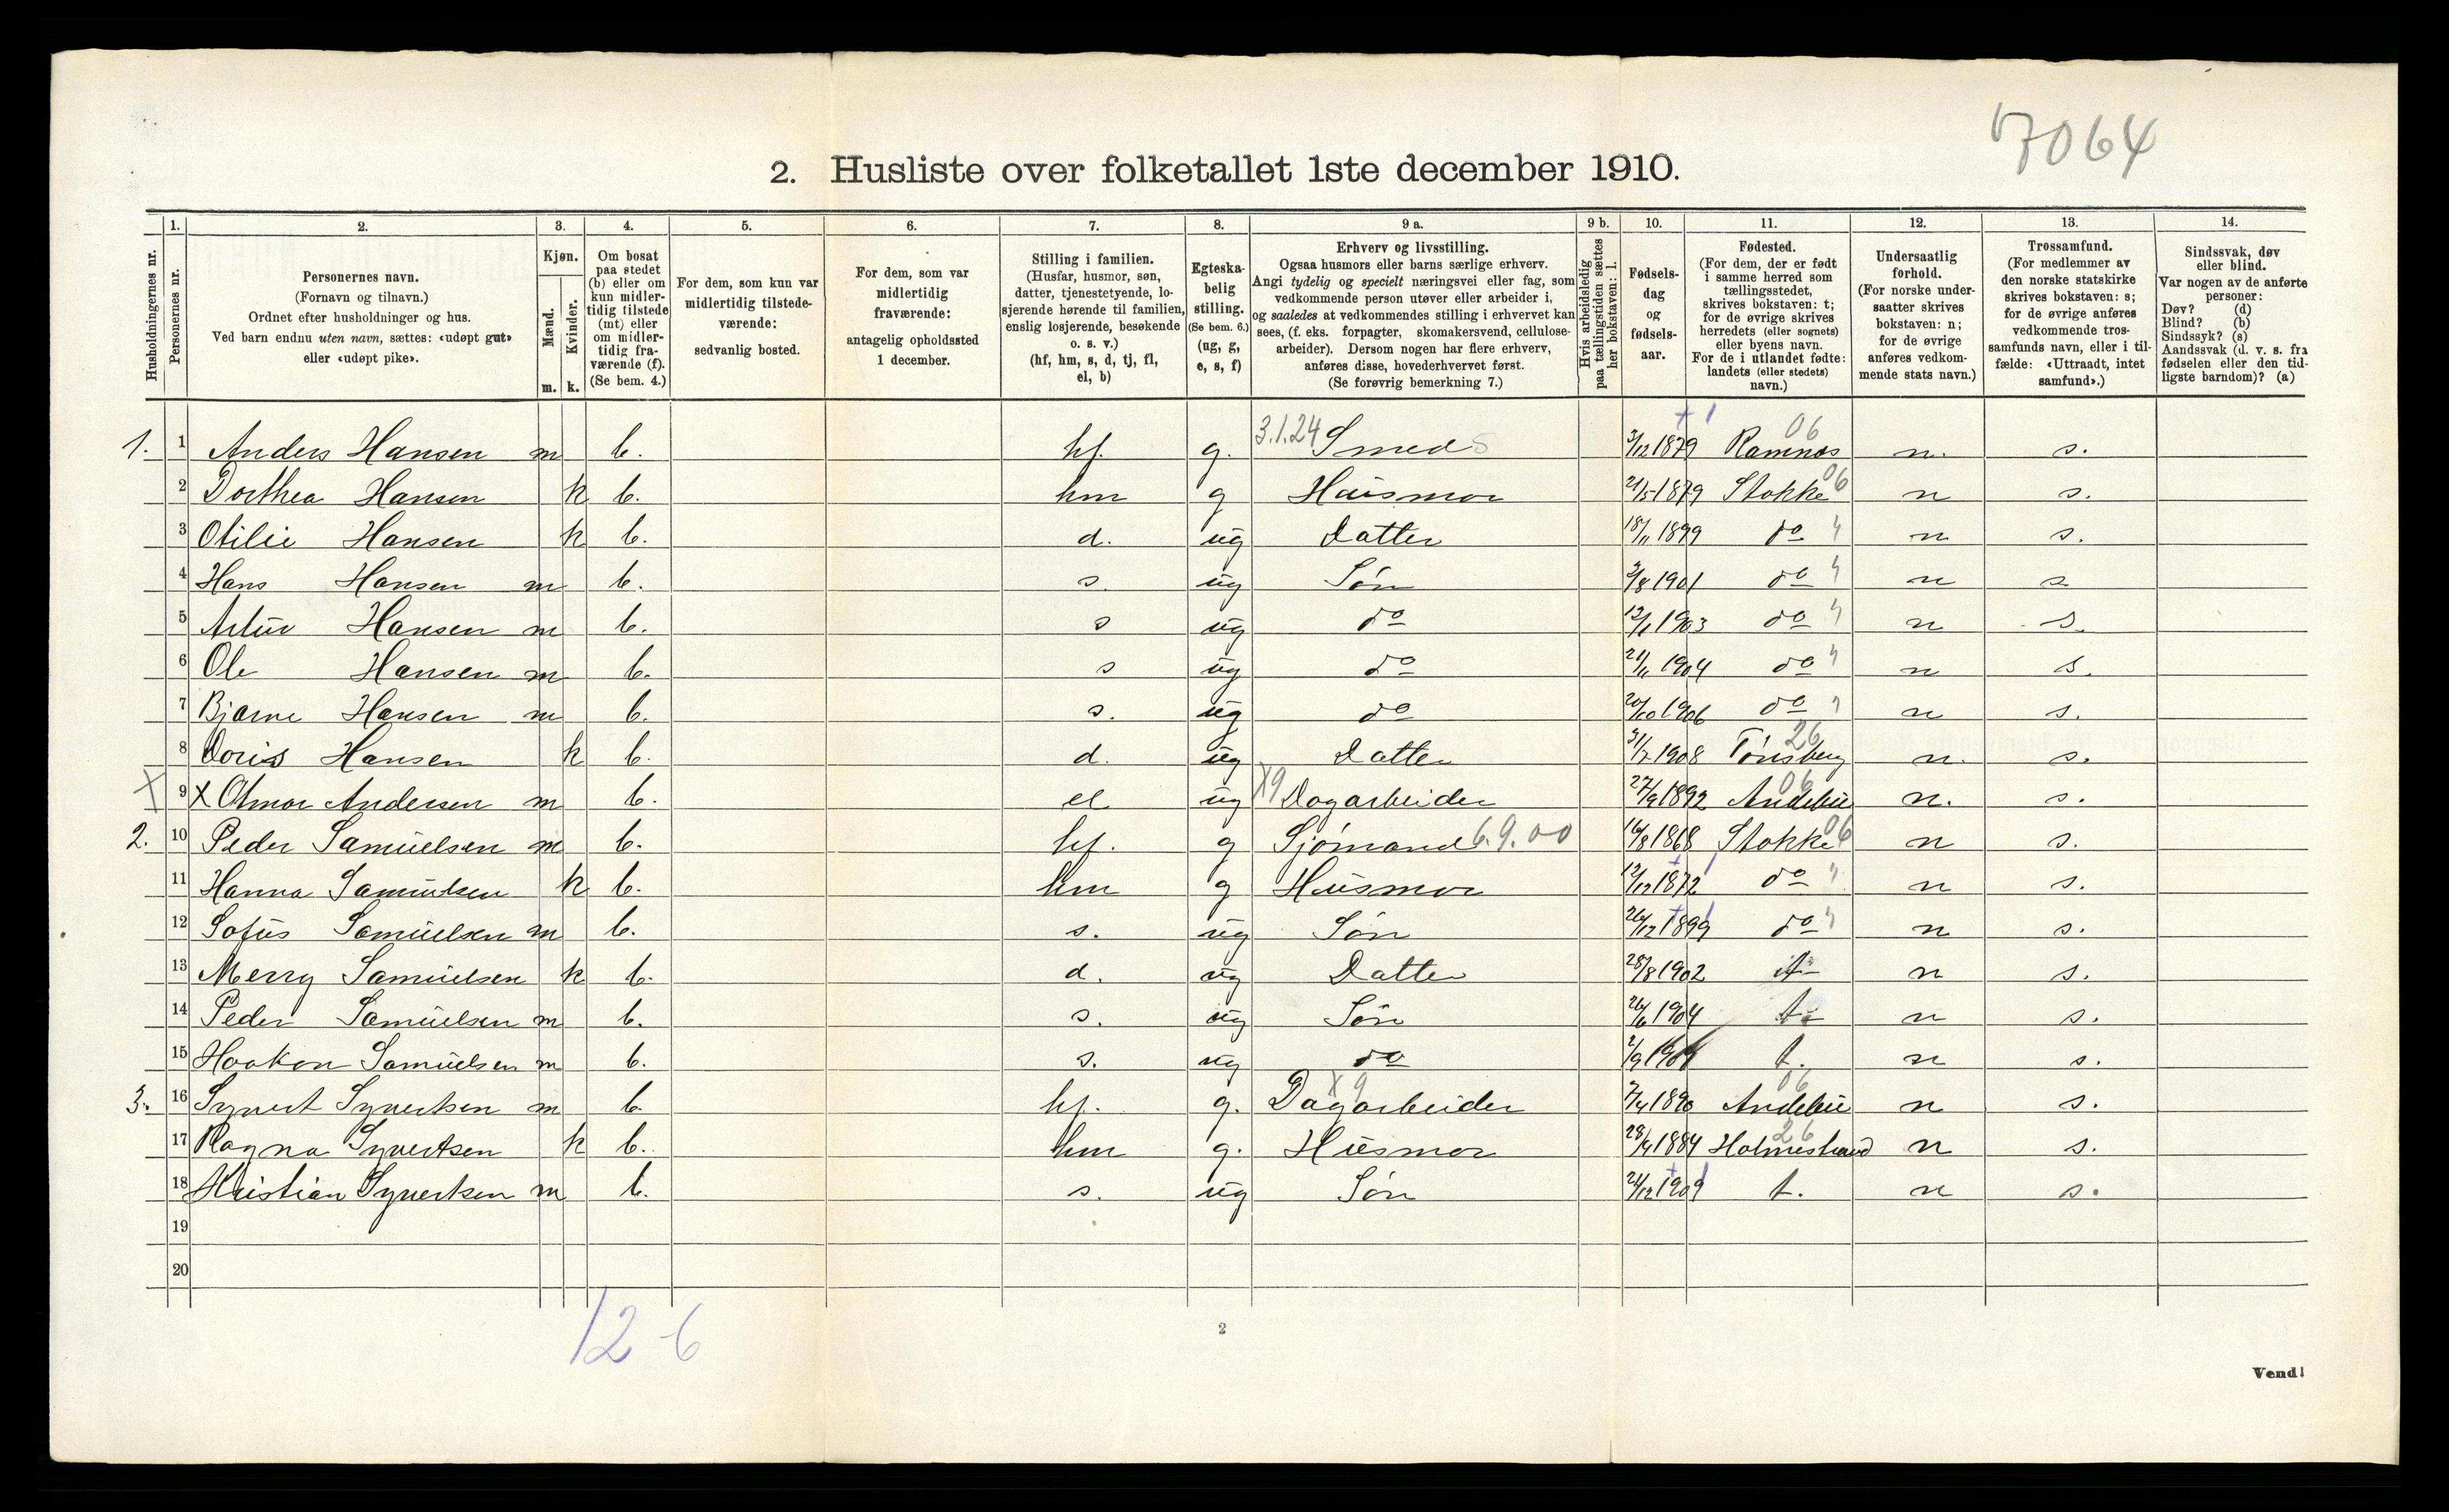 7064
2. Husliste over folketallet 1ste december 1910.
1. 2. 3. 4. 5. 6. 7. 8. 9 a. 9 b. 10. 11. 12. 13. 14.
Husholdningernes nr.
Personernes nr.
Personernes navn.
(Fornavn og tilnavn.)
Ordnet efter husholdninger og hus.
Ved barn endnu uten navn, sættes: «udøpt gut»
eller «udøpt pike».
Kjøn.
Mænd.
Kvinder.
m. k.
Om bosat
paa stedet
(b) eller om
kun midler-
tidig tilstede
(mt) eller
om midler-
tidig fra-
værende (f).
(Se bem. 4.)
For dem, som kun var
midlertidig tilstede-
værende:
sedvanlig bosted.
For dem, som var
midlertidig
fraværende:
antagelig opholdssted
1 december.
Stilling i familien.
(Husfar, husmor, søn,
datter, tjenestetyende, lo-
sjerende hørende til familien,
enslig losjerende, besøkende
o. s. v.)
(hf, hm, s, d, tj, fl,
el, b)
Egteska-
belig
stilling.
(Se bem. 6.)
(ug, g,
e, s, f)
Erhverv og livsstilling.
Ogsaa husmors eller barns særlige erhverv.
Angi tydelig og specielt næringsvei eller fag, som
vedkommende person utøver eller arbeider i,
og saaledes at vedkommendes stilling i erhvervet kan
sees, (f. eks. forpagter, skomakersvend, cellulose-
arbeider). Dersom nogen har flere erhverv,
anføres disse, hovederhvervet først.
(Se forøvrig bemerkning 7.)
Hvis arbeidsledig
paa tællingstiden sættes
her bokstaven: l.
Fødsels-
dag
og
fødsels-
aar.
Fødested.
(For dem, der er født
i samme herred som
tællingsstedet,
skrives bokstaven: t;
for de øvrige skrives
herredets (eller sognets)
eller byens navn.
For de i utlandet fødte:
landets (eller stedets)
navn.)
Undersaatlig
forhold.
(For norske under-
saatter skrives
bokstaven: n;
for de øvrige
anføres vedkom-
mende stats navn.)
Trossamfund.
(For medlemmer av
den norske statskirke
skrives bokstaven: s;
for de øvrige anføres
vedkommende tros-
samfunds navn, eller i til-
fælde: «Uttraadt, intet
samfund».)
Sindssvak, døv
eller blind.
Var nogen av de anførte
personer:
Døv? (d)
Blind? (b)
Sindssyk? (s)
Aandssvak (d. v. s. fra
fødselen eller den tid-
ligste barndom)? (a)
1. 1 Anders Hansen m b. hf. g. 3.1.24 Smed 3/12 1879 Ramnes 06 n. s.
2 Dorthea Hansen k b. hm g Husmor 21/5 1879 Stokke 06 n s.
3 Otilie Hansen k b. d. ug Datter 18/11 1899 do n s.
4 Hans Hansen m b. s. ug Søn 3/8 1901 do n s
5 Artur Hansen m b. s ug do 12/1 1903 do n s.
6 Ole Hansen m b. s ug do 21/11 1904 do n s.
7 Bjarne Hansen m b. s. ug do 20/10 1906 do n s.
8 Doris Hansen k b. d. ug Datter 31/7 1908 Tønsberg 26 n. s.
X 9 X Otmar Andersen m b. el ug X9 Dagarbeider 27/9 1892 Andebu 06 n. s.
2. 10 Peder Samuelsen m b. hf. g Sjømand 6.9.00 16/8 1868 Stokke 06 n s.
11 Hanna Samuelsen k b. hm g Husmor 12/12 1872 do n s.
12 Sofus Samuelsen m b. s. ug Søn 26/12 1899 do n s.
13 Merry Samuelsen k b. d. ug Datter 28/8 1902 n s.
14 Peder Samuelsen m b. s. ug Søn 26/6 1904 t n s.
15 Haakon Samuelsen m b. s. ug do t. n s.
3. 16 Syvert Syvertsen m b. hf. g. X9 Dagarbeider 7/4 1890 Andebu 06 n s.
17 Ragna Syvertsen k b. hm g. Husmor 28/4 1884 Holmestrand 26 n s.
18 Kristian Syvertsen m b. s. ug Søn 24/12 1909 t. n s.
19
20
12-6
2
Vend!